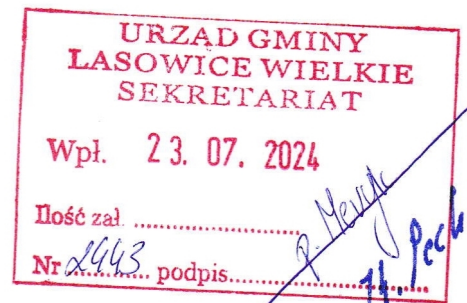 URZĄD GMINY
LASOWICE WIELKIE
SEKRETARIAT
Wpł. 23. 07. 2024
Ilość zał. ..............................
Nr 2443 podpis..............................